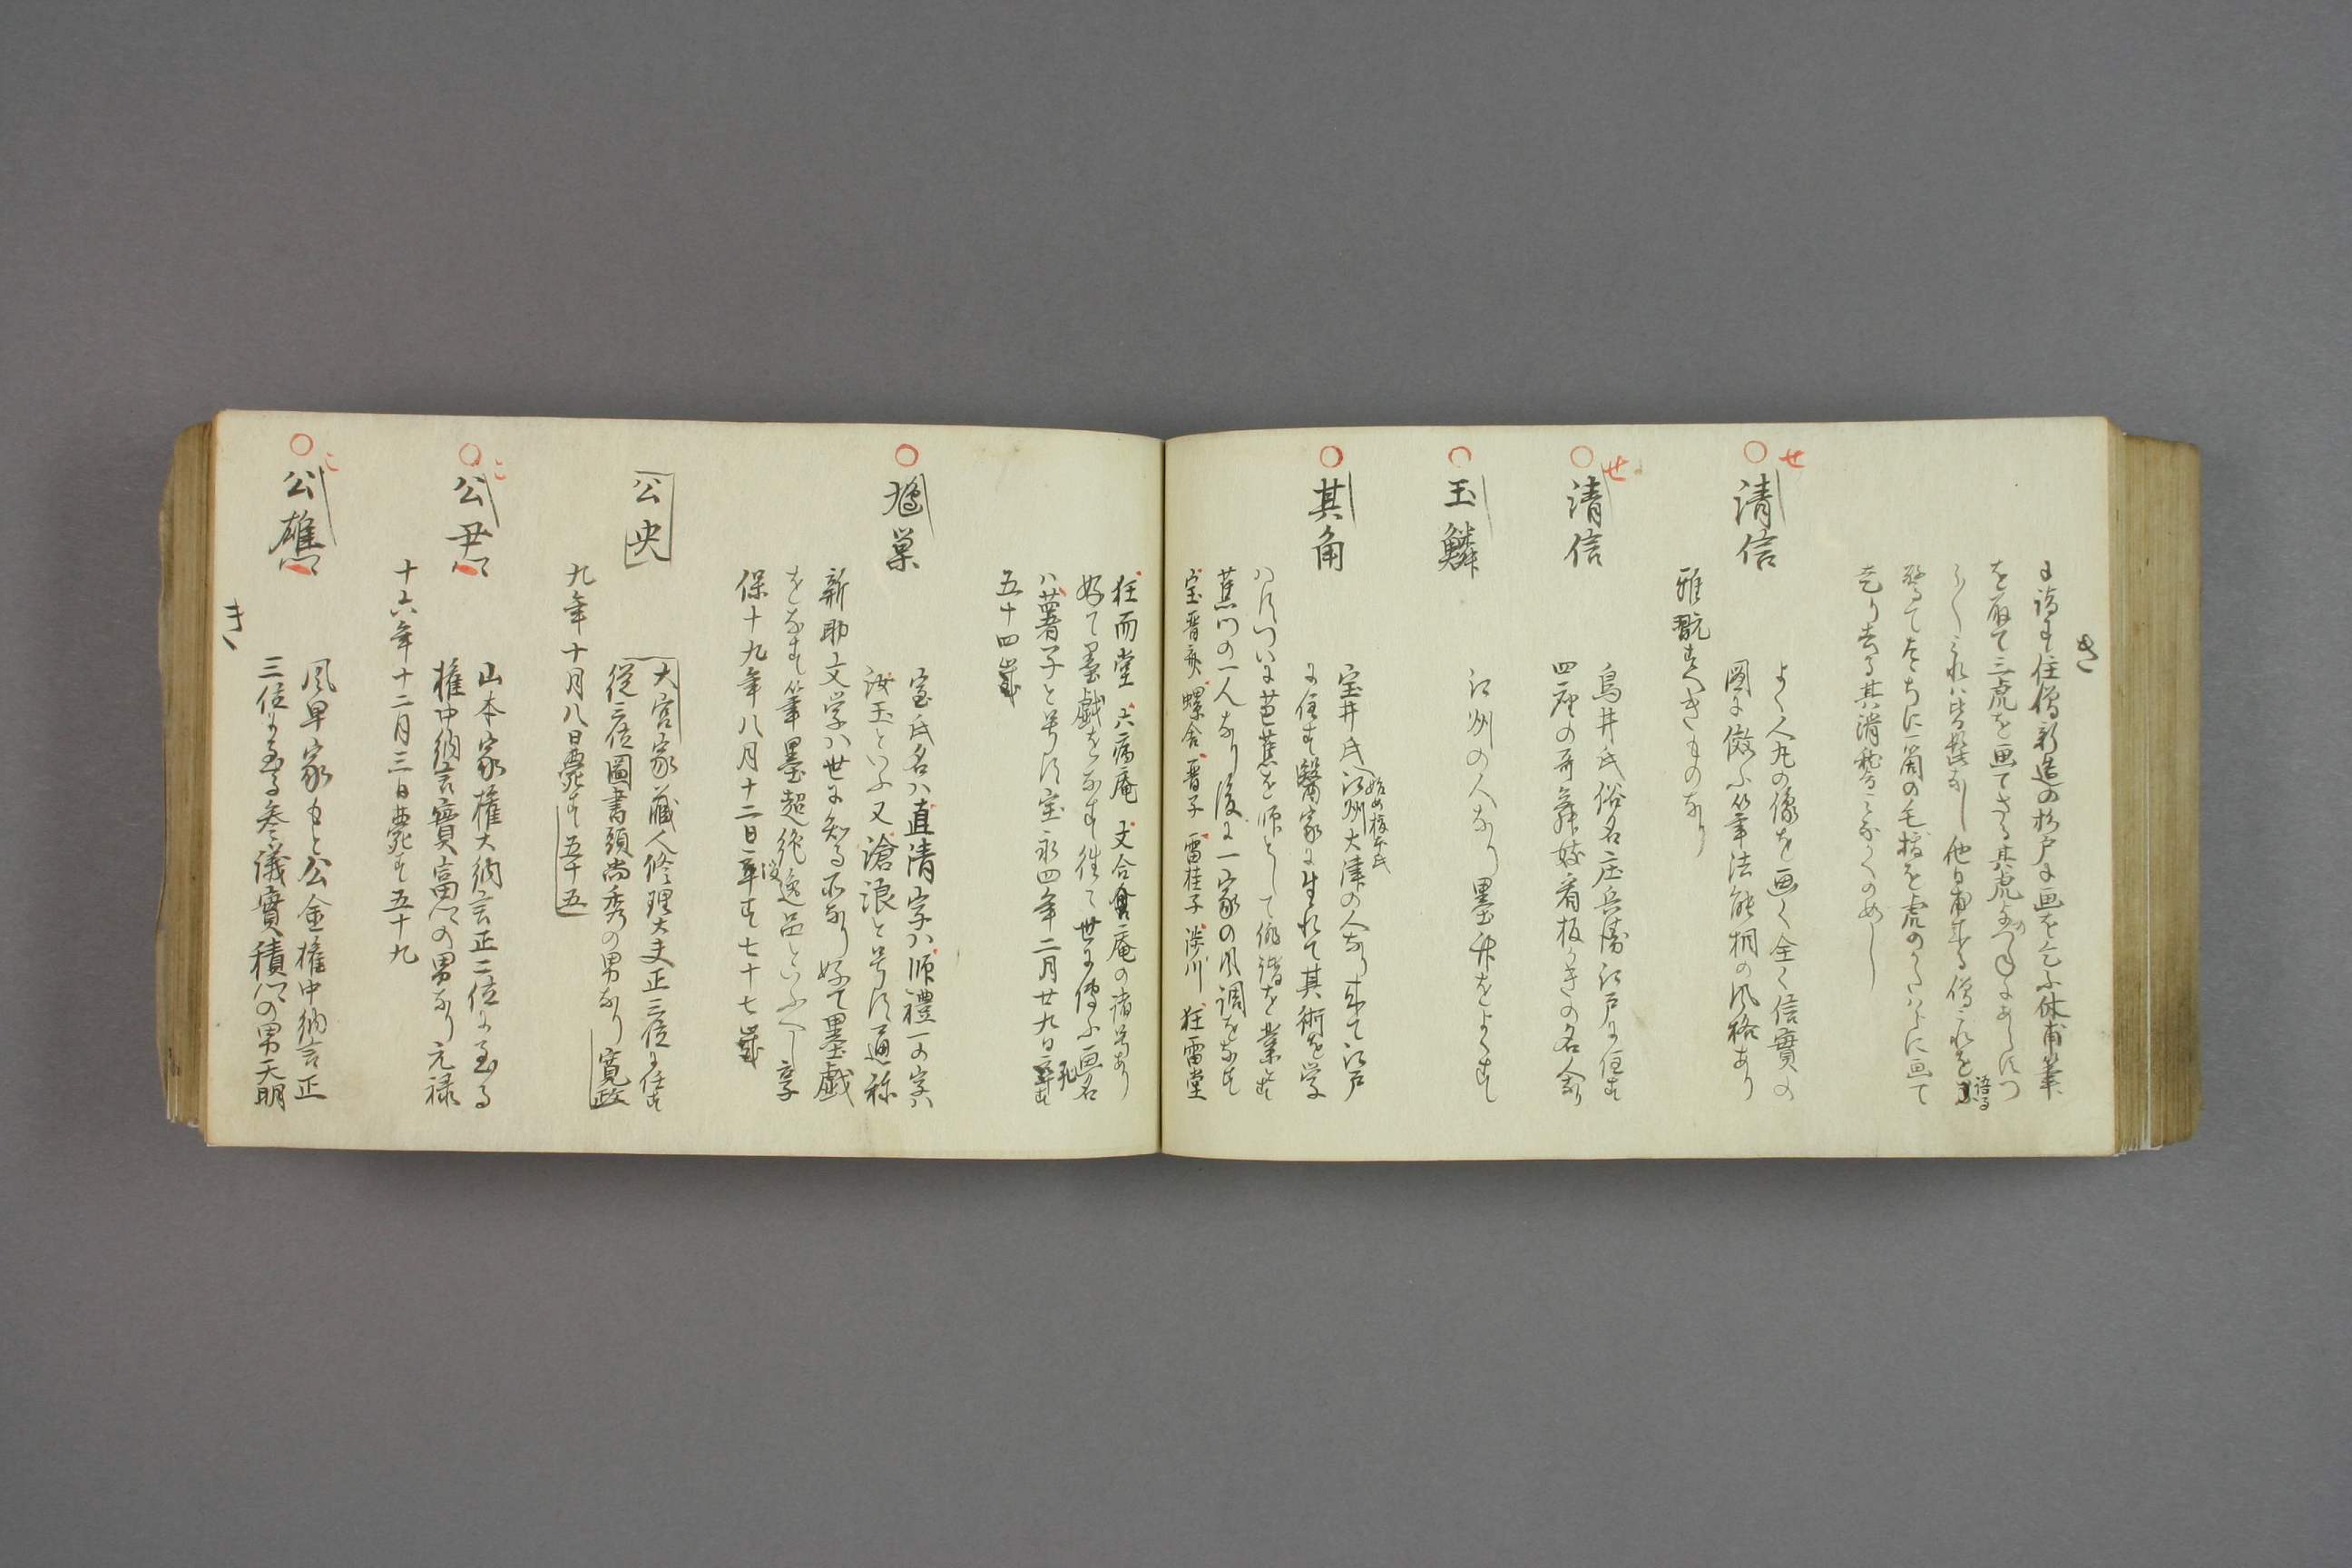 き
に請す住僧新造の杉戸に画を乞ふ休甫筆
を取て三虎を画てさる其虎
走り去る其滑稽
せ
清信
よく人丸の像を画く全く信實の
圖に傚ふ筆法能桐の風格あり
雅翫すへきものなり
せ
清信
鳥井氏俗名庄兵衛江戸に住す
四座の哥舞妓看板かきの名人なり
玉鱗
江州の人なり墨竹をよくす
其角
始め榎本氏
宝井氏江州大津の人なり来て江戸
に住す醫家に生れて其術を学
ハすつひに芭蕉を師として俳諧を業とす
蕉門の一人なり後に一家の風調をなす
宝晋齋 螺舎 晋子 雷柱子 渉川 狂雷堂
狂而堂 六病庵 文合庵の諸号あり
好て墨戯をなす往て世に傳ふ画名
ハ薯子と号す宝永四年二月廿九日卒す
五十四歳
鳩巣
室氏名ハ直清字ハ師禮一の字ハ
汝玉といふ又滄浪と号す通称
新助文学ハ世に知る所なり好て墨戯
をなす筆墨超絶逸品といふへし享
保十九年八月十二日卒す七十七歳
公央
大宮家蔵人修理大夫正三位に任す
従三位圖書頭尚秀の男なり寛政
九年十月八日薨す五十五
こ
公尹
山本家権大納言正二位に至る
権中納言實富公の男なり元禄
十六年十二月三日薨す五十九
こ
公雄公
風早家もと公金権中納言正
三位に至る参議實積公の男天明
き